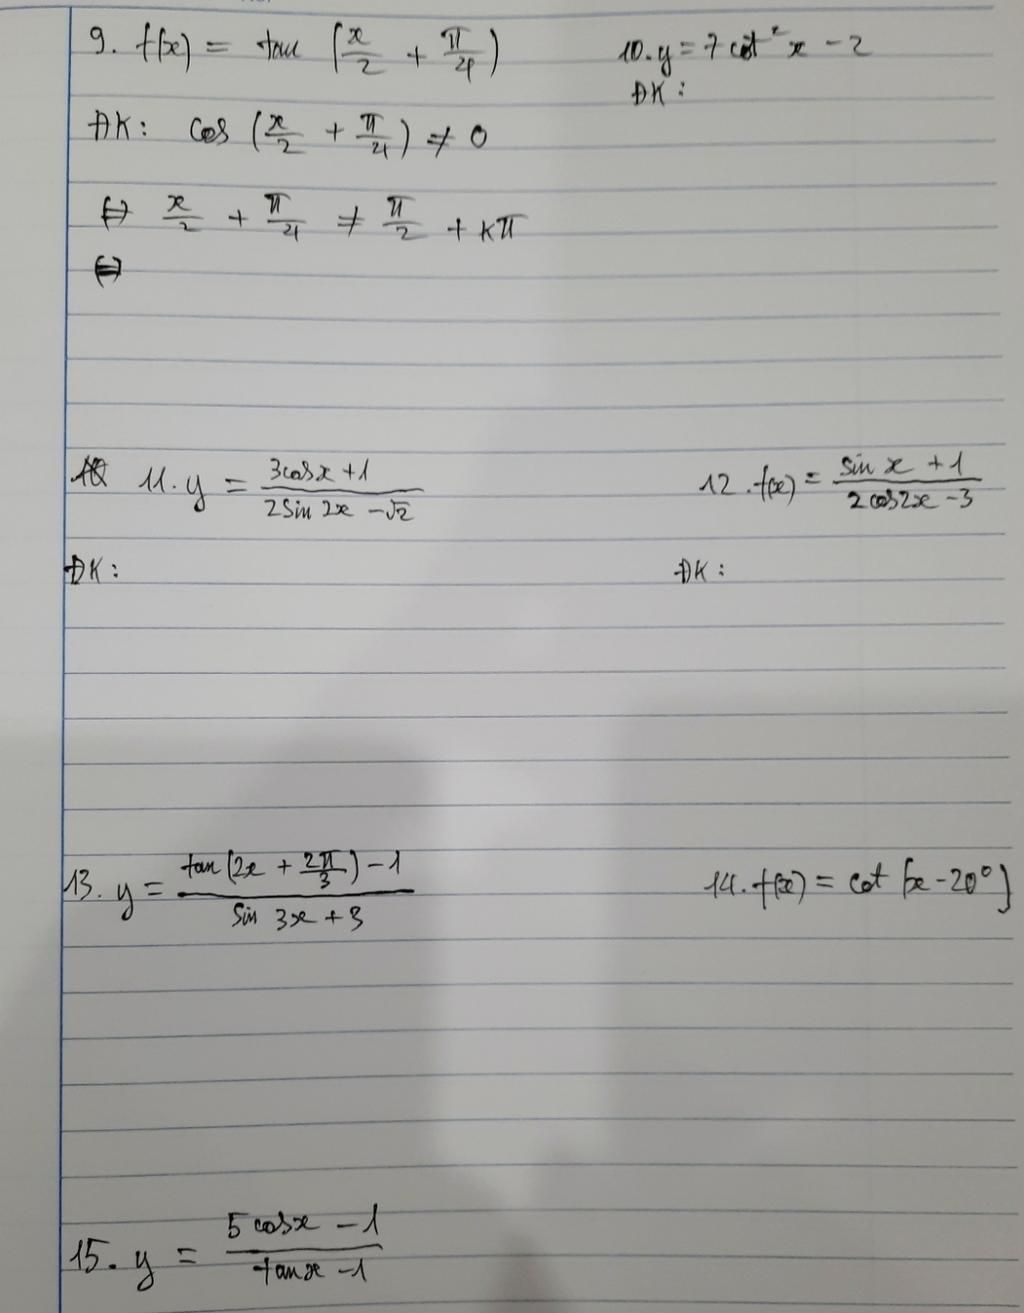 9. f(x) = tan (x/2 + π/4)
10. y = 7 cot² x - 2
ĐK:
ĐK: cos (x/2 + π/4) ≠ 0
⇔ x/2 + π/4 ≠ π/2 + kπ
⇔
11. y = (3cosx + 1)/(2sin 2x - √2)
12. f(x) = (sin x + 1)/(2cos2x - 3)
ĐK:
ĐK:
13. y = (tan(2x + 2π/3) - 1)/(sin 3x + 3)
14. f(x) = cot (x - 20°)
15. y = (5cosx - 1)/(tanx - 1)